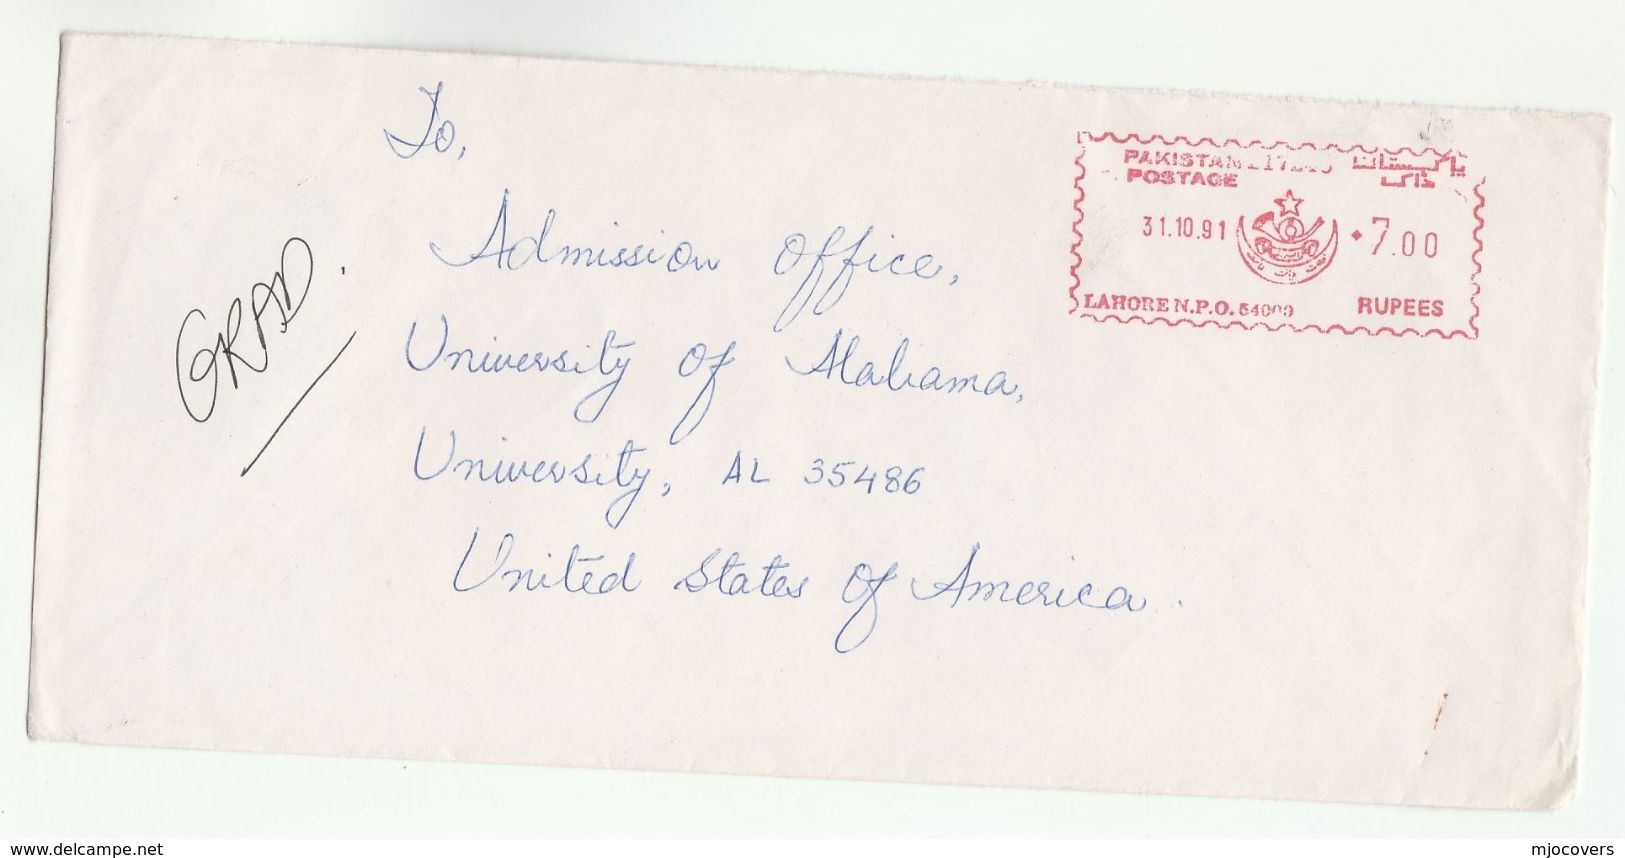 To,
Admission Office,
University Of Alabama,
University, AL 35486
United States Of America.
GRAD.
PAKISTAN پاکستان
POSTAGE ڈاک
31.10.91 7.00
LAHORE N.P.O. 54000 RUPEES
www.delcampe.net
mjocovers